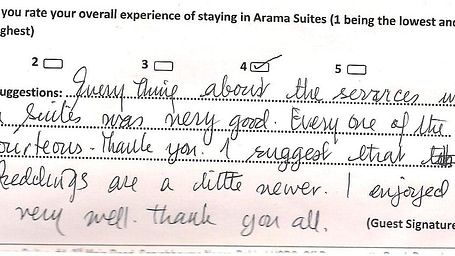 you rate your overall experience of staying in Arama Suites (1 being the lowest and
ghest)
2 3 4 5
uggestions: Every thing about the services
Suites was very good. Every one of the
ourteous. Thank you. I suggest that
beddings are a little newer. I enjoyed
very well. thank you all. (Guest Signature